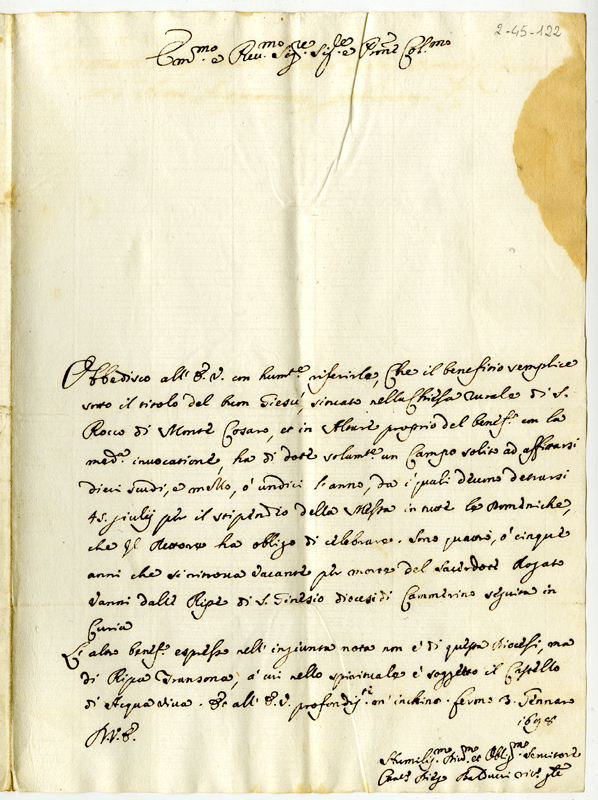 2-45-122
Em.mo e Rev.mo Sig.re Sig.re e Pron.e Col.mo
Obbedisco all' E.V. con hum.te riferirle, che il beneficio semplice
sotto il titolo del buon Giesù, situato nella Chiesa rurale di S.
Rocco di Monte Cosaro, et in Altare proprio del benef.o con la
med.a invocatione, ha di dote solam.te un Campo solito ad affittarsi
dieci scudi, e mezzo, ò undici l'anno, da i quali devono detrarsi
45. giulij per il stipendio della Messa in tutte le Domeniche,
che il Rettore ha obligo di celebrare. Sono quattro, ò cinque
anni che si ritrova vacante per morte del Sacerdote Rogato
Vanni dalle Ripe di S. Ginesio diocesi di Cammerino seguita in
Curia
L'altro benef.o espresso nell' ingiunta nota non è di questa diocesi, ma
di Ripa Transona, à cui nello spirituale è soggetto il Castello
di Acqua viva. Et all' E.V. profondiss.te m' inchino. fermo 3. Gennaro
1698
D.V.E.
Humiliss.mo Div.mo et Oblig.mo Servitore
Balducci